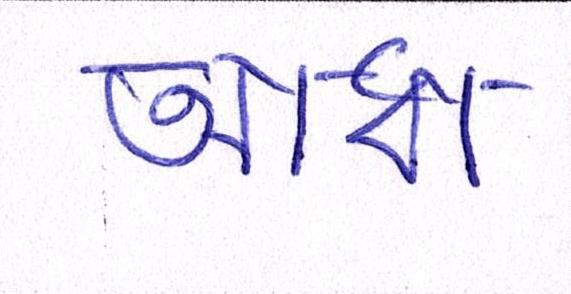 আধা